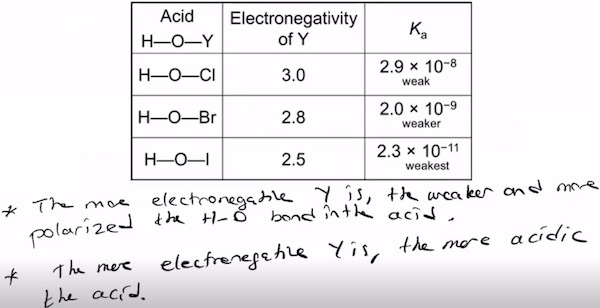 Acid Electronegativity
H—O—Y of Y Ka
H—O—Cl 3.0 2.9 × 10⁻⁸
weak
H—O—Br 2.8 2.0 × 10⁻⁹
weaker
H—O—I 2.5 2.3 × 10⁻¹¹
weakest
* The more electronegative Y is, the weaker and more
polarized the H-O bond in the acid.
* The more electronegative Y is, the more acidic
the acid.